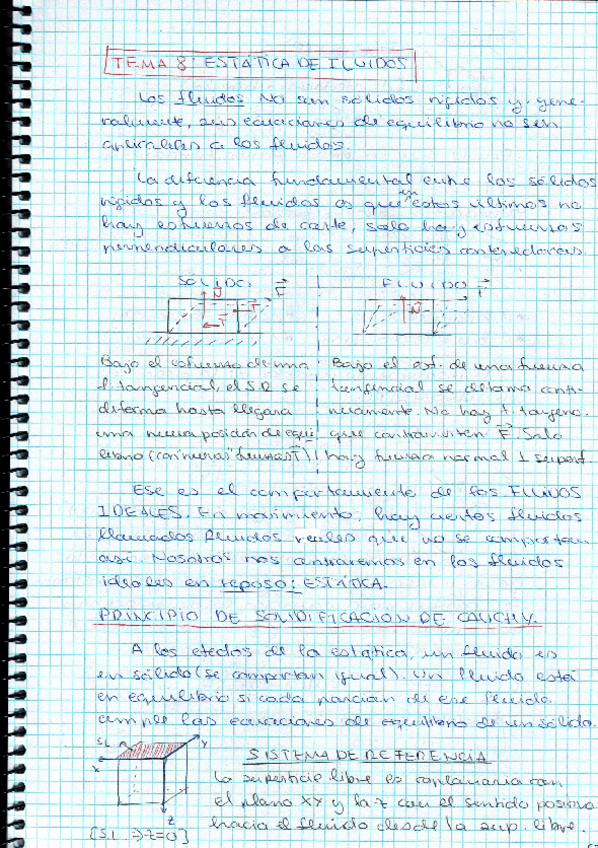 TEMA 8: ESTÁTICA DE FLUIDOS
Los fluidos No son sólidos rígidos y, gene-
ralmente, sus ecuaciones de equilibrio no son
aplicables a los fluidos.
La diferencia fundamental entre los sólidos
rígidos y los fluidos es que en estos últimos no
hay esfuerzos de corte, solo hay esfuerzos
perpendiculares a las superficies contenedoras.
SOLIDO F
FLUIDO F
N T T
N
Bajo el esfuerzo de una
f. tangencial, el S.R se
deforma hasta llegar a
una nueva posición de equi
librio (con nuevas fuerzas T)
Bajo el esf. de una fuerza
tangencial se deforma conti-
nuamente. No hay f. tangenc.
que contrarresten F. Solo
hay fuerza normal ⊥ superf.
Ese es el comportamiento de los FLUIDOS
IDEALES. En movimiento, hay ciertos fluidos
llamados fluidos reales que no se comportan
así. Nosotros nos centraremos en los fluidos
ideales en reposo: ESTÁTICA.
PRINCIPIO DE SOLIDIFICACIÓN DE CAUCHY.
A los efectos de la estática, un fluido es
un sólido (se comportan igual). Un fluido está
en equilibrio si cada porción de ese fluido
cumple las ecuaciones de equilibrio de un sólido.
S.L
x
y
z
[S.L. → z=0]
SISTEMA DE REFERENCIA
La superficie libre es coplanaria con
el plano XY y la z con el sentido positivo
hacia el fluido desde la sup. libre.